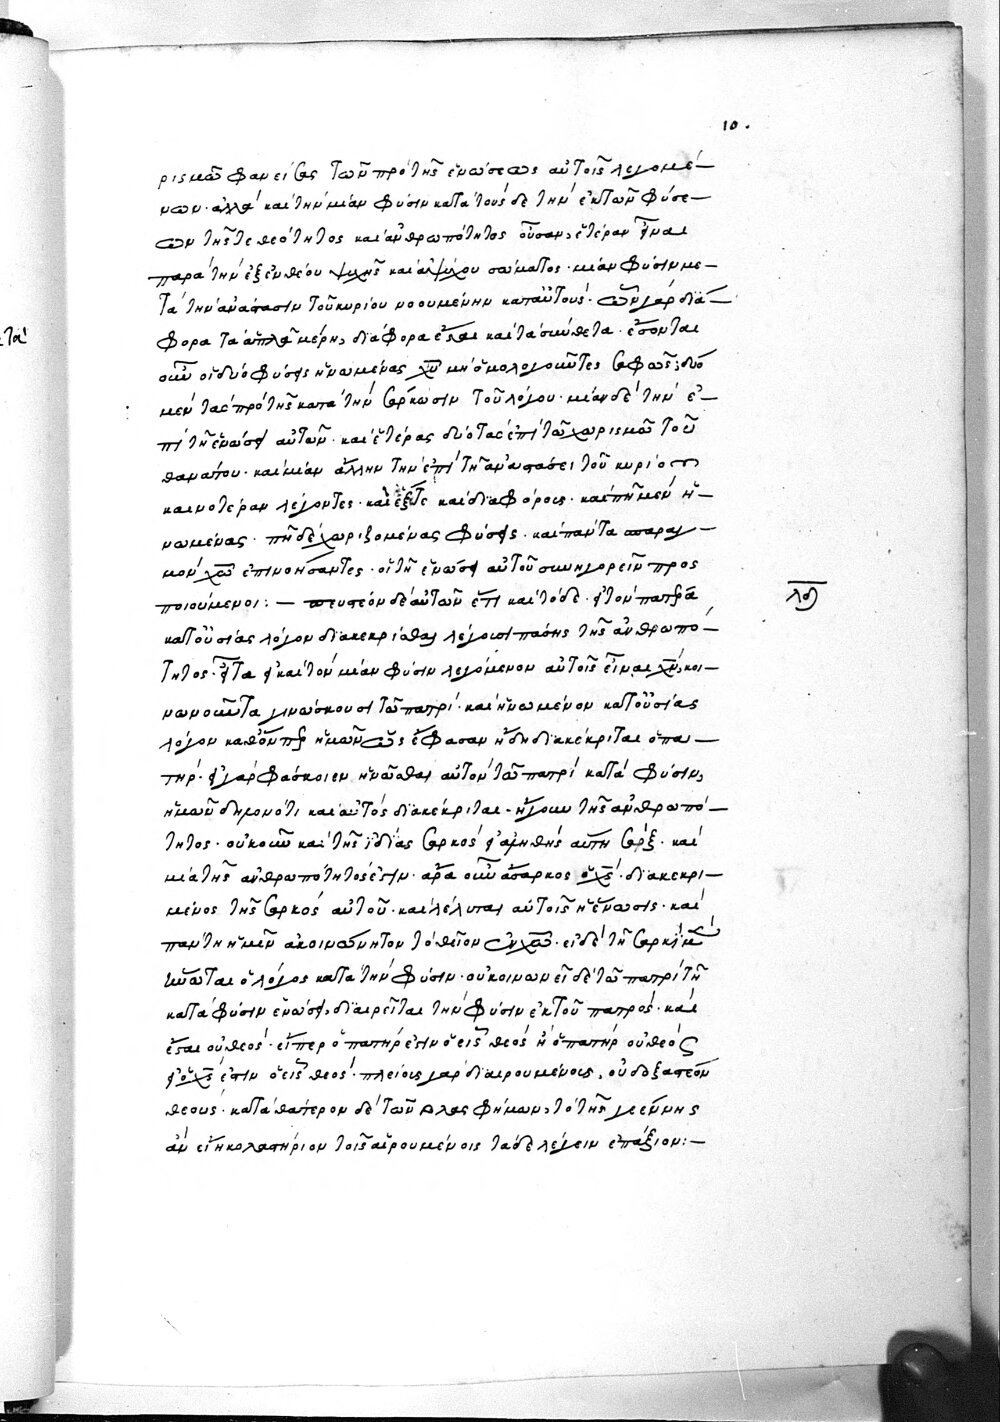 10.
ρισμῶ φανείσας τῶν πρὸ τῆς ἑνώσεως αὐτοῖς λεγομέ—
νων· ἀλλὰ καὶ τὴν μίαν φύσιν κατὰ τούσδε τὴν ἐκ τῶν φύσε—
ων τῆς τε θεότητος καὶ ἀνθρωπότητος οὖσαν, ἑτέραν εἶναι
παρὰ τὴν ἐξ ἐνθέου ψυχῆς καὶ ἀψύχου σώματος· μίαν φύσιν με—
τὰ τὴν ἀνάστασιν τοῦ κυρίου νοουμένην κατ' αὐτούς· ὧν γὰρ διά—
φορα τὰ ἁπλᾶ μέρη, διάφορα ἔσται καὶ τὰ σύνθετα· ἔσονται
οὖν οἱ δύο φύσεις ἡνωμένας χν μὴ ὁμολογοῦντες σαφῶς, δύο
μὲν τὰς πρὸ τῆς κατὰ τὴν σάρκωσιν τοῦ λόγου· μίαν δὲ τὴν ἐ—
πὶ τῇ ἑνώσει αὐτῶν· καὶ ἑτέρας δύο τὰς ἐπὶ τῶ χωρισμῶ τοῦ
θανάτου· καὶ μίαν ἄλλην τὴν ἐπὶ τῇ ἀναστάσει τοῦ κυρίου
καινοτέραν λέγοντες· καὶ ἕξ τε καὶ διαφόροις· καὶ πῆ μὲν ἡ—
νωμένας· πῆ δὲ χωριζομένας φύσεις· καὶ πάντα μᾶλλον
χω ἐπινοήσαντες· οἱ τῇ ἑνώσει αὐτοῦ συνηγορεῖν προς
ποιούμενοι: — πευστέον δὲ αὐτῶν ἔτι καὶ τόδε· εἰ τὸν πατρα
κατ' οὐσίας λόγον διακεκρίσθαι λέγουσι πάσης τῆς ἀνθρωπό—
τητος· εἶτα εἰ καὶ τὸν μίαν φύσιν λεγόμενον αὐτοῖς εἶναι χν, κοι—
νωνοῦντα γινώσκουσι τῶ πατρί· καὶ ἡνωμένον κατ' οὐσίας
λόγον καθ' ὃν πρ ἡμῶν ὡς ἔφασαν ἤδη διακέκριται ὁ πα—
τήρ· εἰ γὰρ φάσκοιεν ἡνῶσθαι αὐτὸν τῶ πατρὶ κατὰ φύσιν,
ἡμῶν δηλονότι καὶ αὐτὸς διακέκριται· ἤγουν τῆς ἀνθρωπό—
τητος· οὐκοῦν καὶ τῆς ἰδίας σαρκὸς εἰ ἀληθὴς αὕτη σάρξ· καὶ
μία τῆς ἀνθρωπότητός ἐστιν· ἆρα οὖν ἄσαρκος ὁ χς· διακεκρι—
μένος τῆς σαρκὸς αὐτοῦ· καὶ λέλυται αὐτοῖς ἡ ἕνωσις· καὶ
πάντη ἡμῖν ἀκοινώνητον τὸ θεῖον ἐν χω· εἰ δὲ τῇ σαρκὶ μὲν
ἥνωται ὁ λόγος κατὰ τὴν φύσιν· οὐ κοινωνεῖ δὲ τῶ πατρὶ τῇ
κατὰ φύσιν ἑνώσει, διαιρεῖται τὴν φύσιν ἐκ τοῦ πατρός· καὶ
ἔσται οὐ θεός· εἴπερ ὁ πατήρ ἐστιν ὁ εἷς θεὸς ἢ ὁ πατὴρ οὐ θεός
εἰ ὁ χς ἐστιν ὁ εἷς θεός· πλείοις γὰρ διαιρουμένοις, οὐ δεξαστέον
θεούς· κατὰ θάτερον δὲ τῶν βλασφήμων, τὸ τῆς γεέννης
ἂν εἴη κολαστήριον τοῖς αἱρουμένοις τάδε λέγειν ἐπάξιον: —